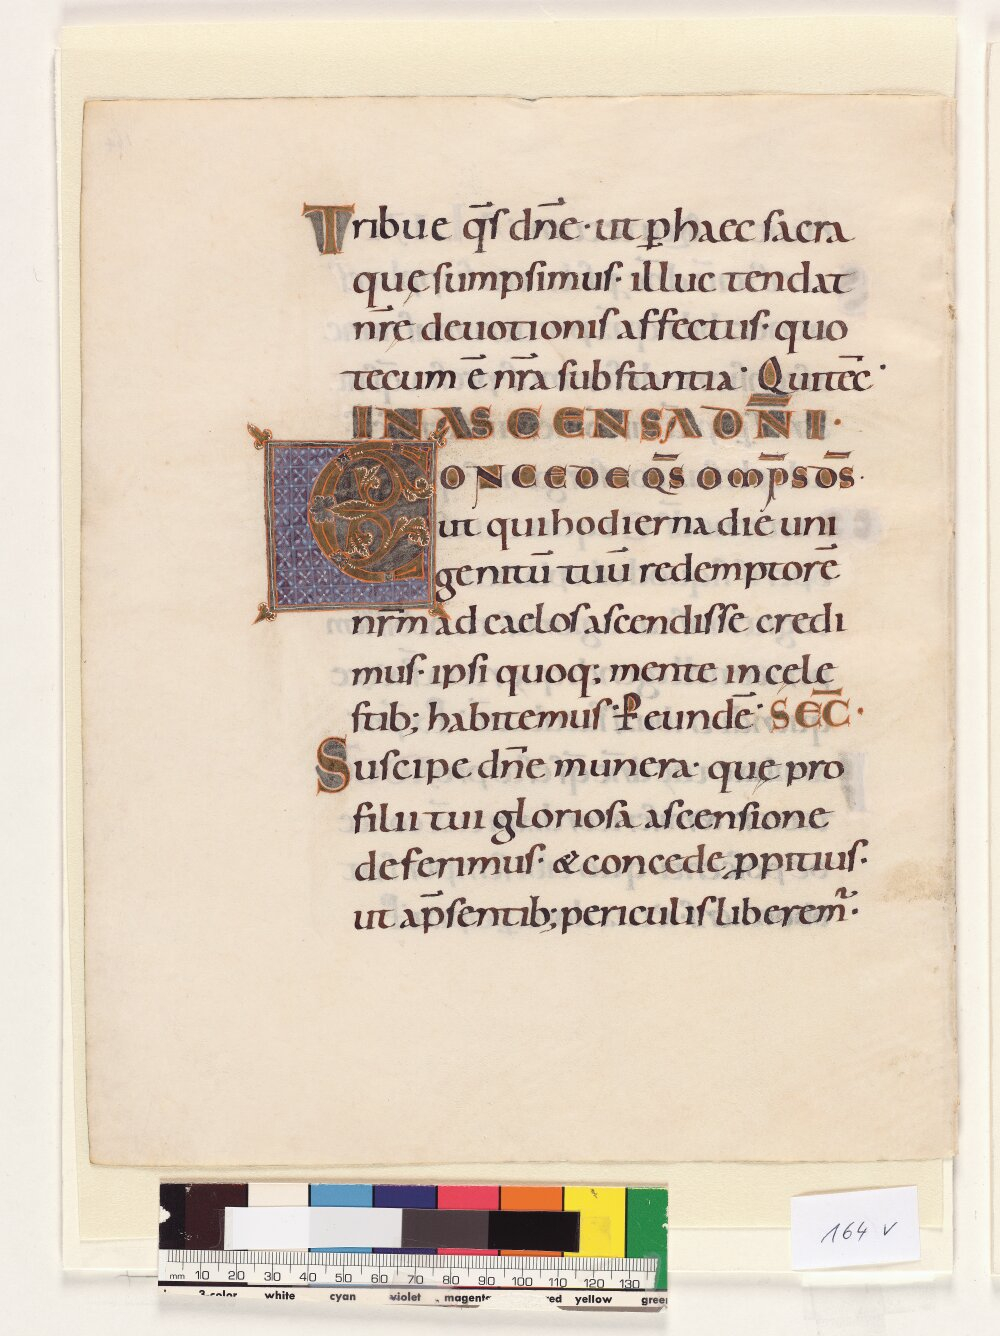 Tribue q̄s dn̄e · ut ꝑ haec sacra
quę sumpsimus · illuc tendat
nr̄e deuotionis affectus · quo
tecum ē nr̄a substantia · Qui tec̄ ·
IN ASCENSA DŃI ·
CONCEDE Q̄S OMP̄S D̄S ·
ut qui hodierna die uni
genitū tuū redemptorē
nr̄m ad caelos ascendisse credi
mus · ipsi quoq; mente in cele
stib; habitemus · P eundē · SEC̄ ·
Suscipe dn̄e munera · quę pro
filii tui gloriosa ascensione
deferimus · & concede ꝓpitius ·
ut a p̄sentib; periculis liberem̃ ·
164 v
mm 10 20 30 40 50 60 70 80 90 100 110 120 130
3-color white cyan violet magenta red yellow green